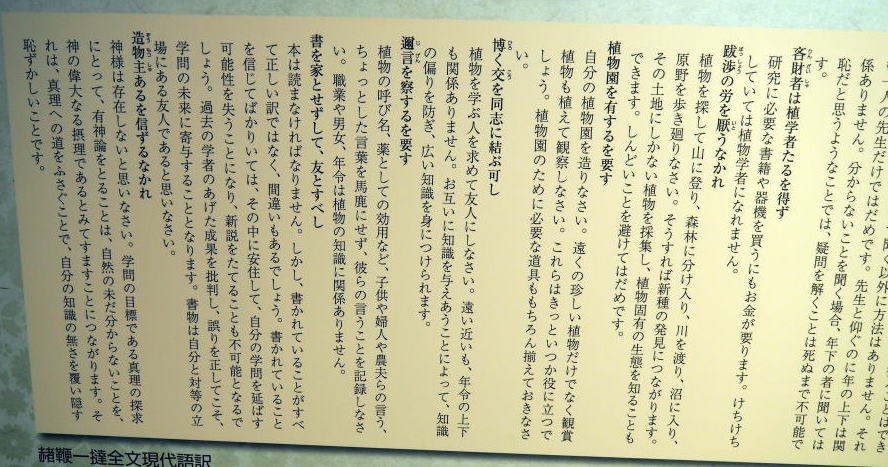 一人の先生だけではだめです。先生と仰ぐのに年の上下は関
係ありません。分からないことを聞く場合、年下の者に聞いては
恥だと思うようなことでは、疑問を解くことは死ぬまで不可能で
す。
吝財者は植学者たるを得ず
研究に必要な書籍や器機を買うにもお金が要ります。けちけち
していては植物学者になれません。
跋渉の労を厭うなかれ
植物を探して山に登り、森林に分け入り、川を渡り、沼に入り、
原野を歩き廻りなさい。そうすれば新種の発見につながります。
その土地にしかない植物を採集し、植物固有の生態を知ることも
できます。しんどいことを避けてはだめです。
植物園を有するを要す
自分の植物園を造りなさい。遠くの珍しい植物だけでなく観賞
植物も植えて観察しなさい。これらはきっといつか役に立つで
しょう。植物園のために必要な道具ももちろん揃えておきなさ
い。
博く交を同志に結ぶ可し
植物を学ぶ人を求めて友人にしなさい。遠い近いも、年令の上下
も関係ありません。お互いに知識を与えあうことによって、知識
の偏りを防ぎ、広い知識を身につけられます。
邇言を察するを要す
植物の呼び名、薬としての効用など、子供や婦人や農夫らの言う、
ちょっとした言葉を馬鹿にせず、彼らの言うことを記録しなさ
い。職業や男女、年令は植物の知識に関係ありません。
書を家とせずして、友とすべし
本は読まなければなりません。しかし、書かれていることがすべ
て正しい訳ではなく、間違いもあるでしょう。書かれていること
を信じてばかりいては、その中に安住して、自分の学問を延ばす
可能性を失うことになり、新説をたてることも不可能となるで
しょう。過去の学者のあげた成果を批判し、誤りを正してこそ、
学問の未来に寄与することとなります。書物は自分と対等の立
場にある友人であると思いなさい。
造物主あるを信ずるなかれ
神様は存在しないと思いなさい。学問の目標である真理の探求
にとって、有神論をとることは、自然の未だ分からないことを、
神の偉大なる摂理であるとみてすますことにつながります。そ
れは、真理への道をふさぐことで、自分の知識の無さを覆い隠す
恥ずかしいことです。
赭鞭一撻全文現代語訳